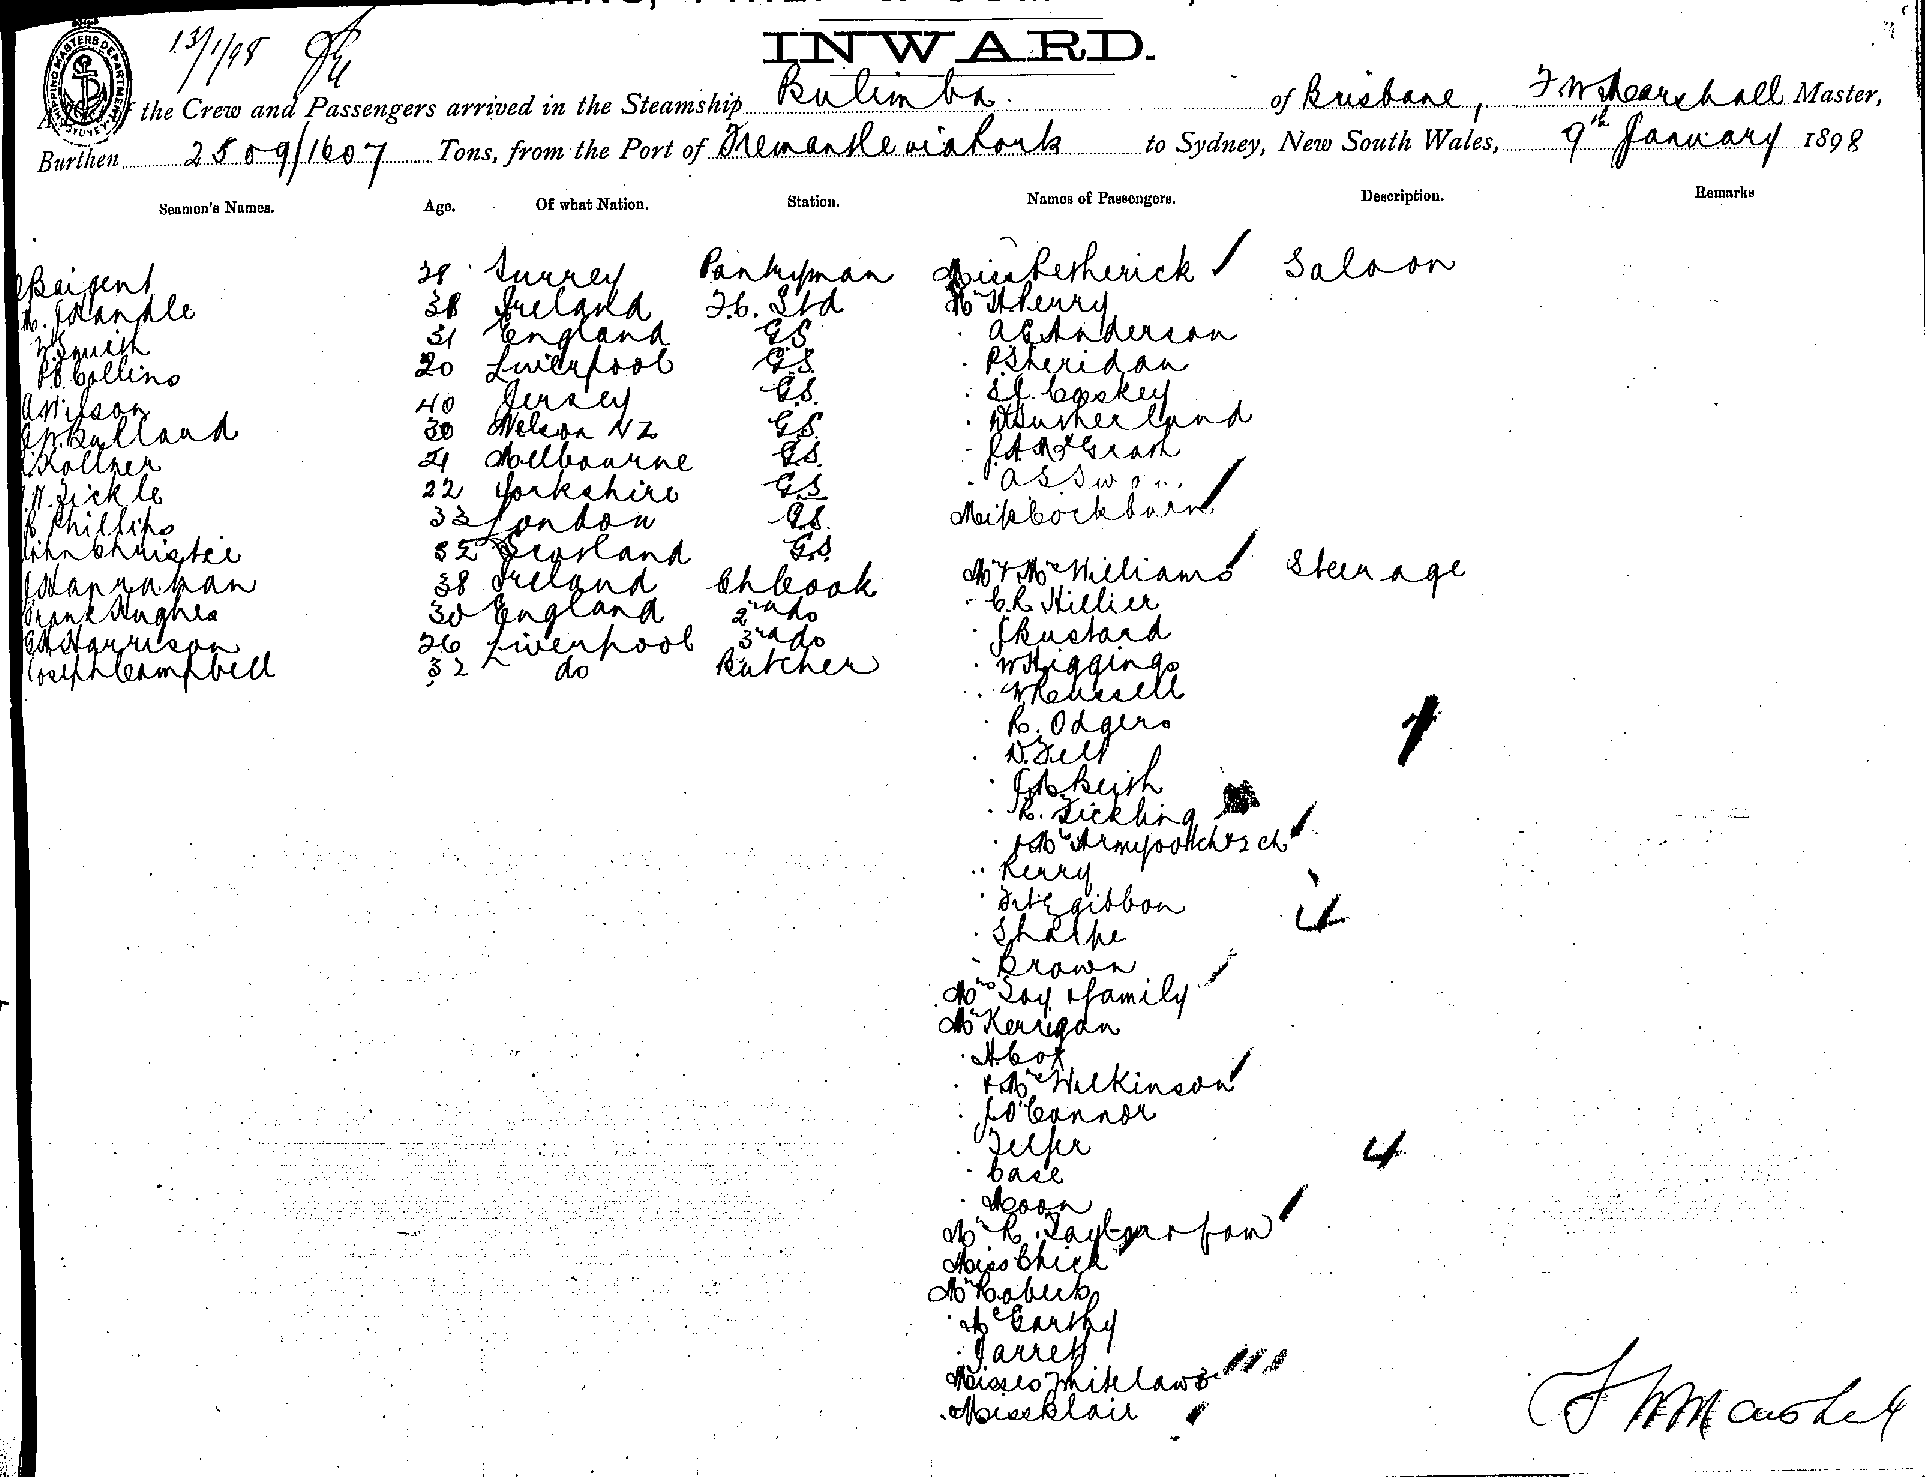 13/1/98
INWARD.
the Crew and Passengers arrived in the Steamship Bulimba. of Brisbane, F W Marshall Master,
Burthen 2509/1607 Tons, from the Port of Fremantle via ports to Sydney, New South Wales, 9th January 1898
Seamen's Names. Age. Of what Nation. Station. Names of Passengers. Description. Remarks
Baigent 28 Surrey Pantryman Miss Petherick Saloon
Randle 38 Ireland F.C. Std Mr H Perry
Smith 31 England G.S. A G Anderson
Collins 20 Liverpool G.S. P Sheridan
Wilson 40 Jersey G.S. Coskey
Bulland 30 Nelson NZ G.S. Sutherland
Kollner 21 Melbourne G.S. McGrath
W. Tickle 22 Yorkshire G.S. A S
Phillips 33 London G.S. Miss Cockburn
John Christie 32 Scotland G.S. Mr & Mrs Williams Steerage
J Hanrahan 38 Ireland Ch Cook C.R. Hillier
Frank Hughes 30 England 2nd do J Bustard
Harrison 26 Liverpool 3rd do W Higgings
Joseph Campbell 32 do Butcher W Russell
R. Odgers
D. Felt
Beith
R. Tickling
& Mrs
Kerry
Fitzgibbon
Sharpe
Brown
Mrs Toy & family
Mr Kerrigan
H Cox
& Mrs Wilkinson
J O'Connor
4
Telfer
Case
Moon
Mrs R. Taylor & fam
Miss Chick
Mr Robeck
McCarthy
Jarrett
Misses Whitelaw 3
Miss Klair
F W Marshall